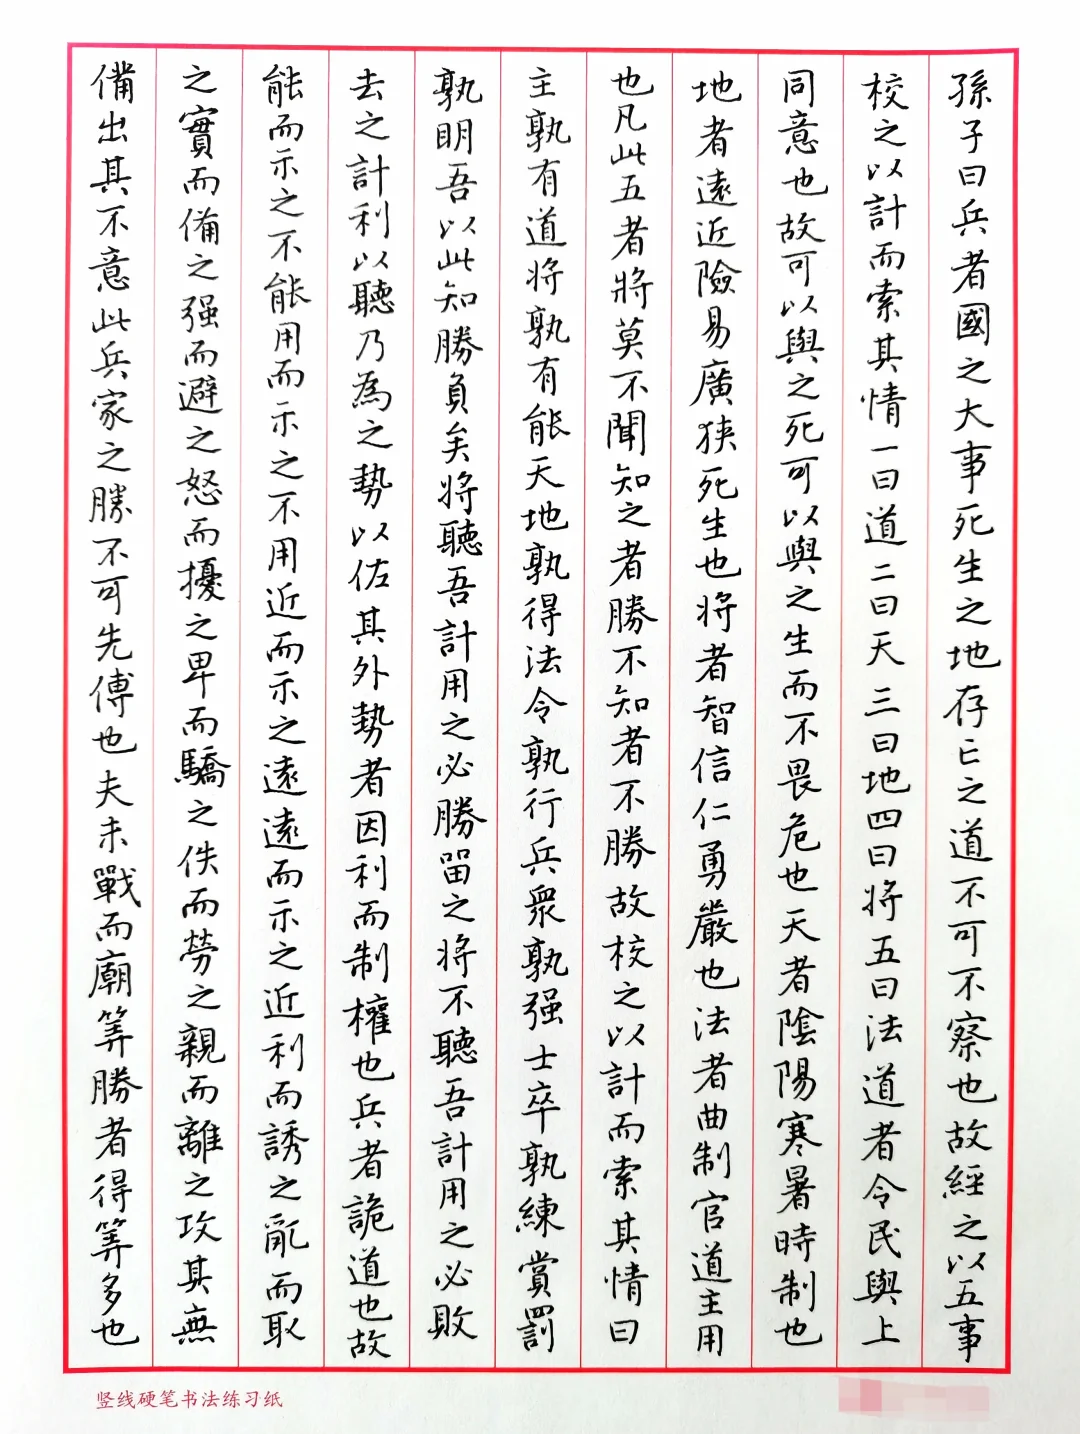 孫子曰兵者國之大事死生之地存亡之道不可不察也故經之以五事
校之以計而索其情一曰道二曰天三曰地四曰将五曰法道者令民與上
同意也故可以與之死可以與之生而不畏危也天者陰陽寒暑時制也
地者遠近險易廣狹死生也将者智信仁勇嚴也法者曲制官道主用
也凡此五者將莫不聞知之者勝不知者不勝故校之以計而索其情曰
主孰有道将孰有能天地孰得法令孰行兵衆孰强士卒孰練賞罰
孰明吾以此知勝負矣将聽吾計用之必勝留之将不聽吾計用之必敗
去之計利以聽乃為之勢以佐其外勢者因利而制權也兵者詭道也故
能而示之不能用而示之不用近而示之遠遠而示之近利而誘之亂而取
之實而備之强而避之怒而擾之卑而驕之佚而勞之親而離之攻其無
備出其不意此兵家之勝不可先傅也夫未戰而廟筭勝者得筭多也
竖线硬笔书法练习纸